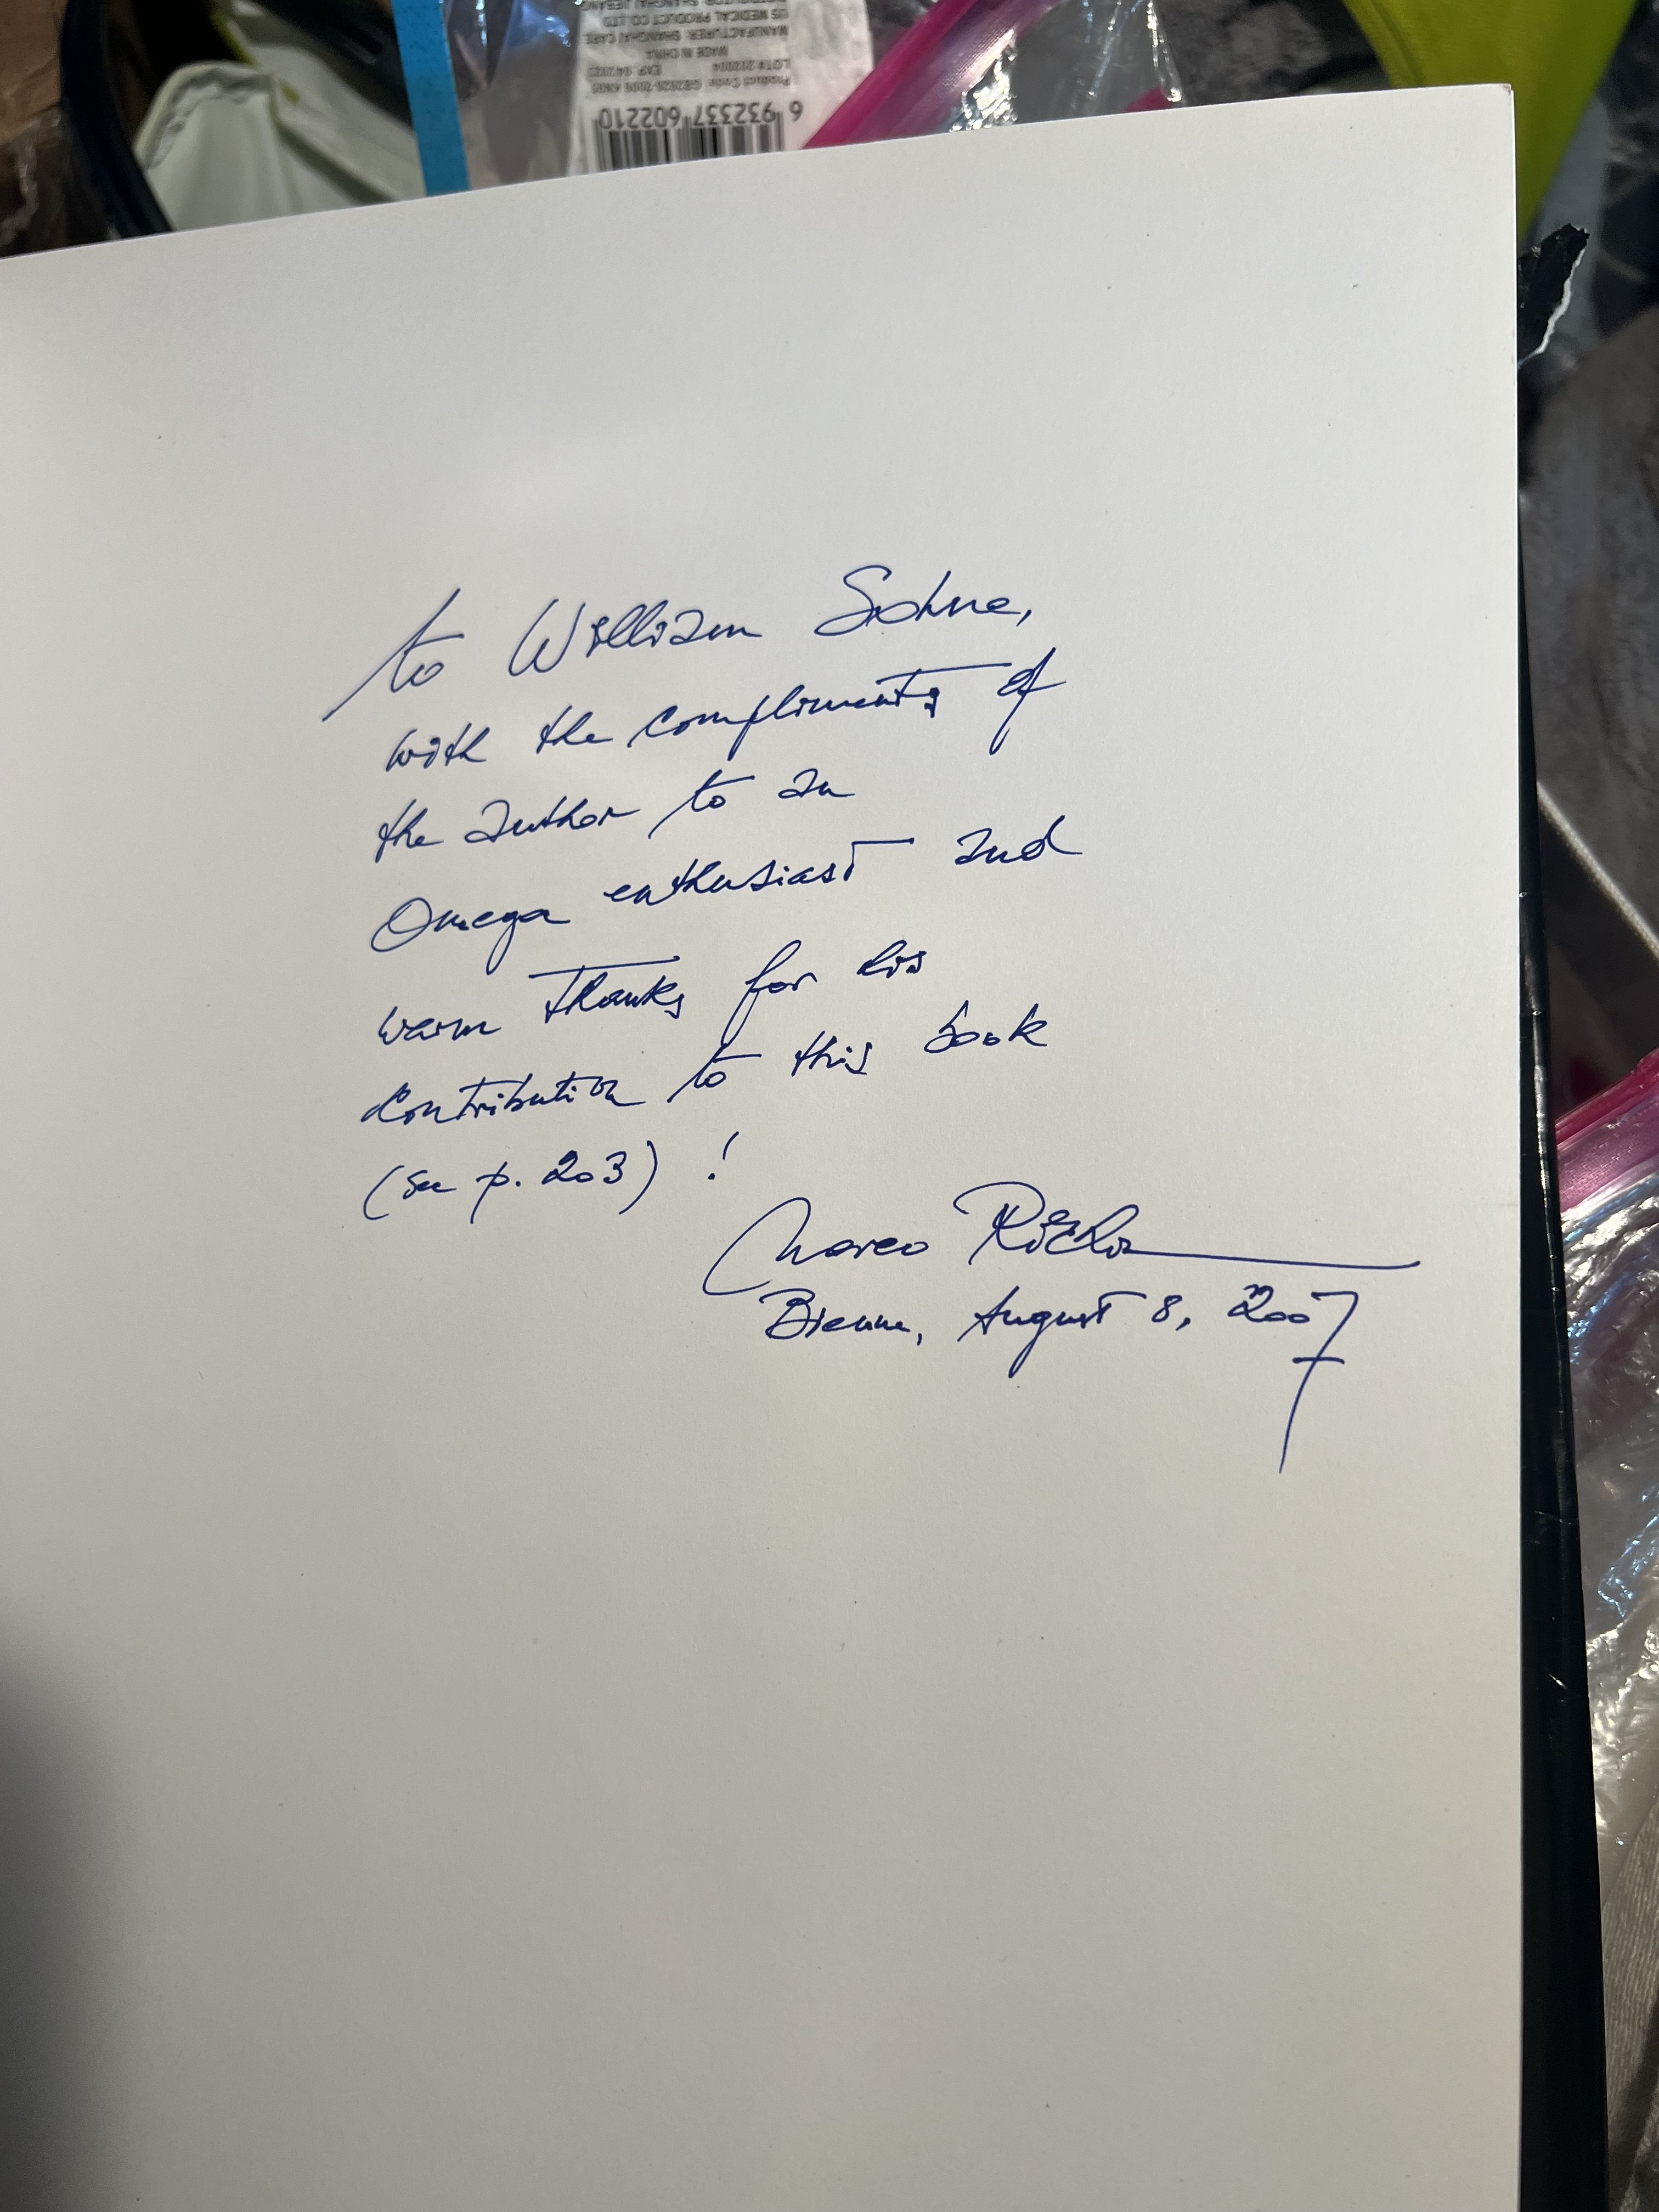 US MEDICAL PRODUCT CO.LTD.
MANUFACTURER: SHANGHAI CARE
MADE IN CHINA
LOT# 202004 EXP. 04/202
Product Code: GB2626-2006 KN95
6 932337 602210
to William Sohne,
with the compliments of
the author to an
Omega enthusiast and
warm thanks for his
contribution to this book
(see p. 203) !
Marco Richon
Bienne, August 8, 2007